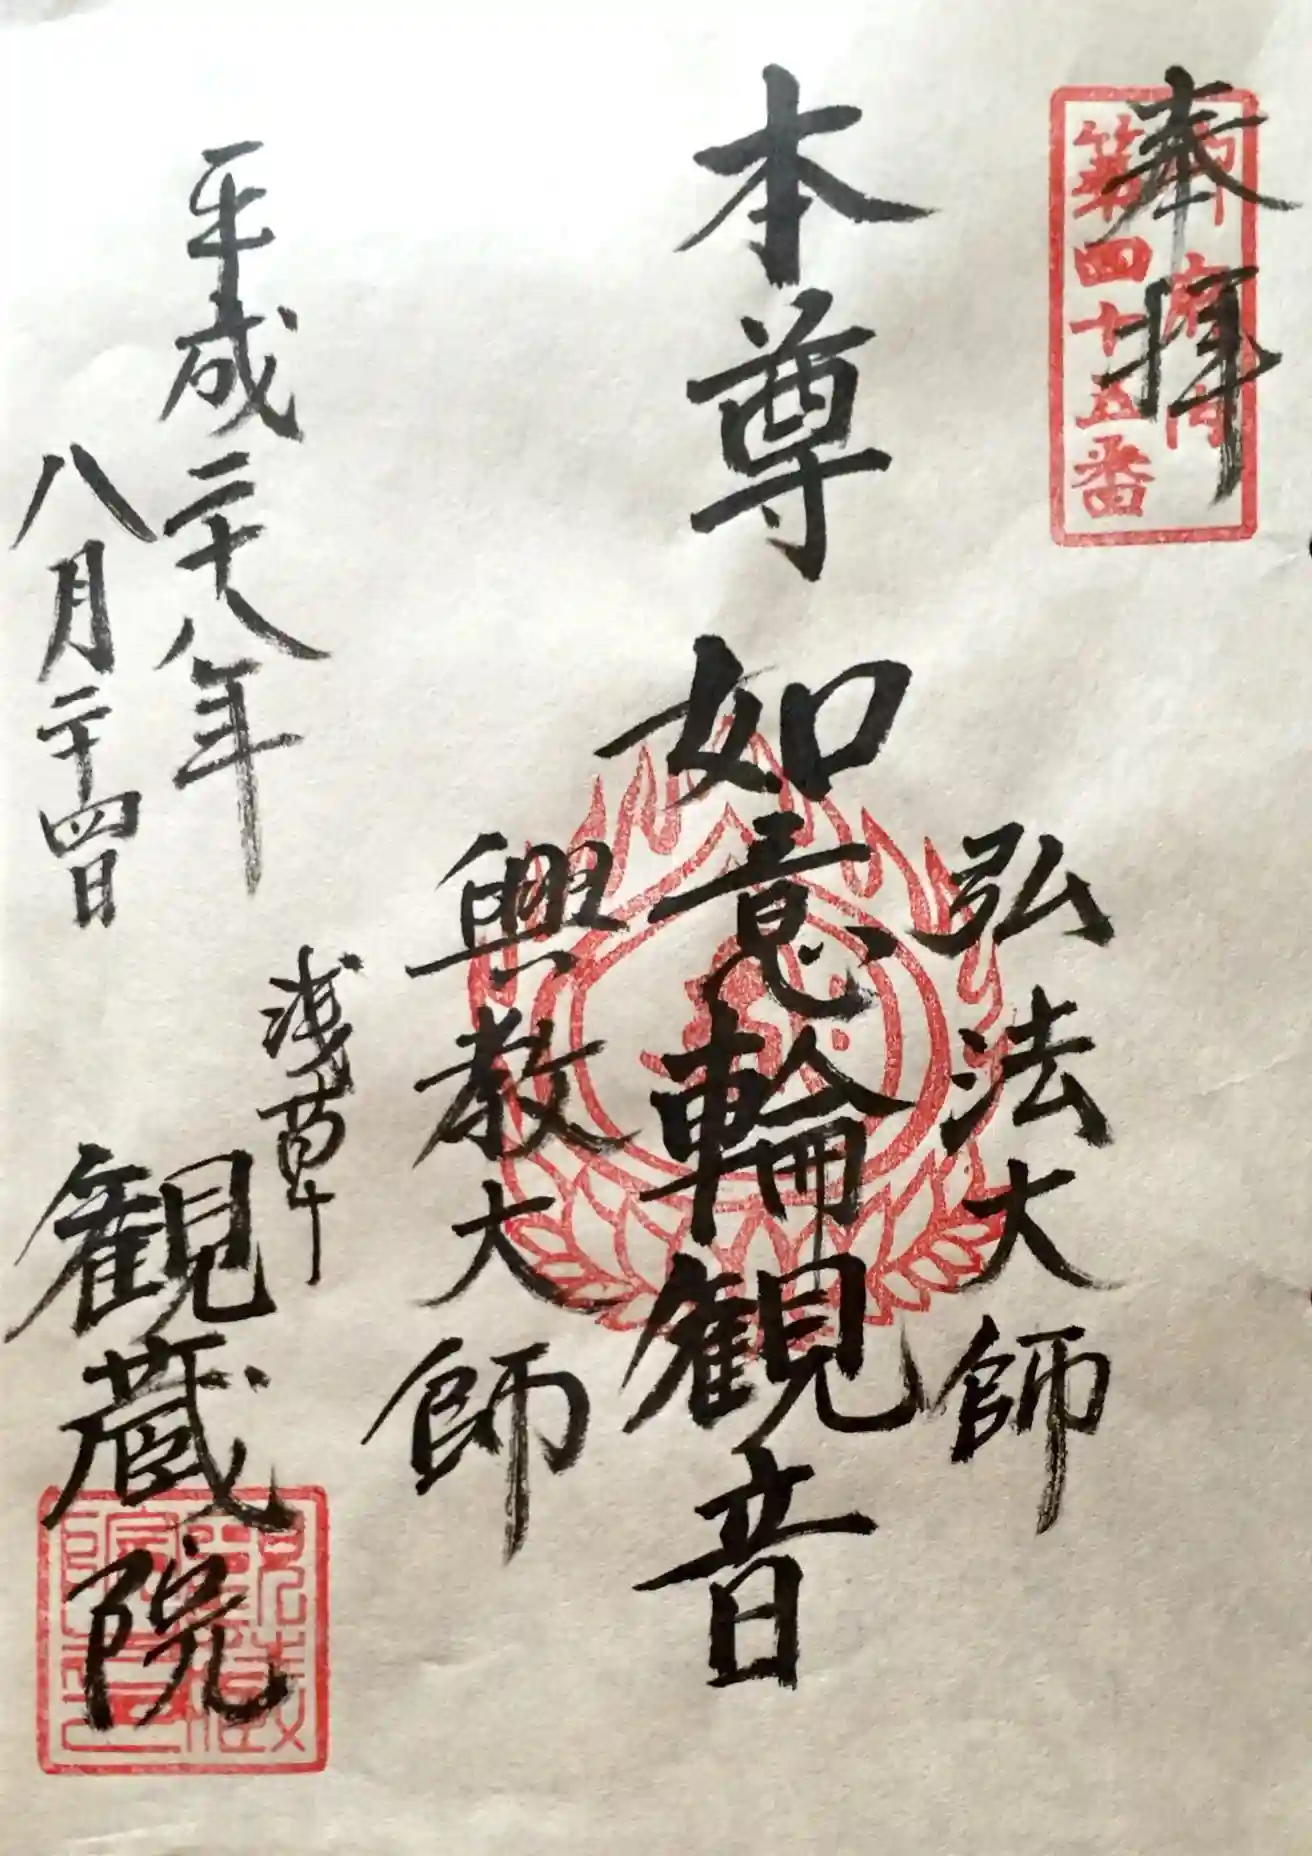 奉拝
御府内
第四十五番
弘法大師
本尊 如意輪観音
興教大師
平成二十八年
八月二十四日
浅草
観蔵院